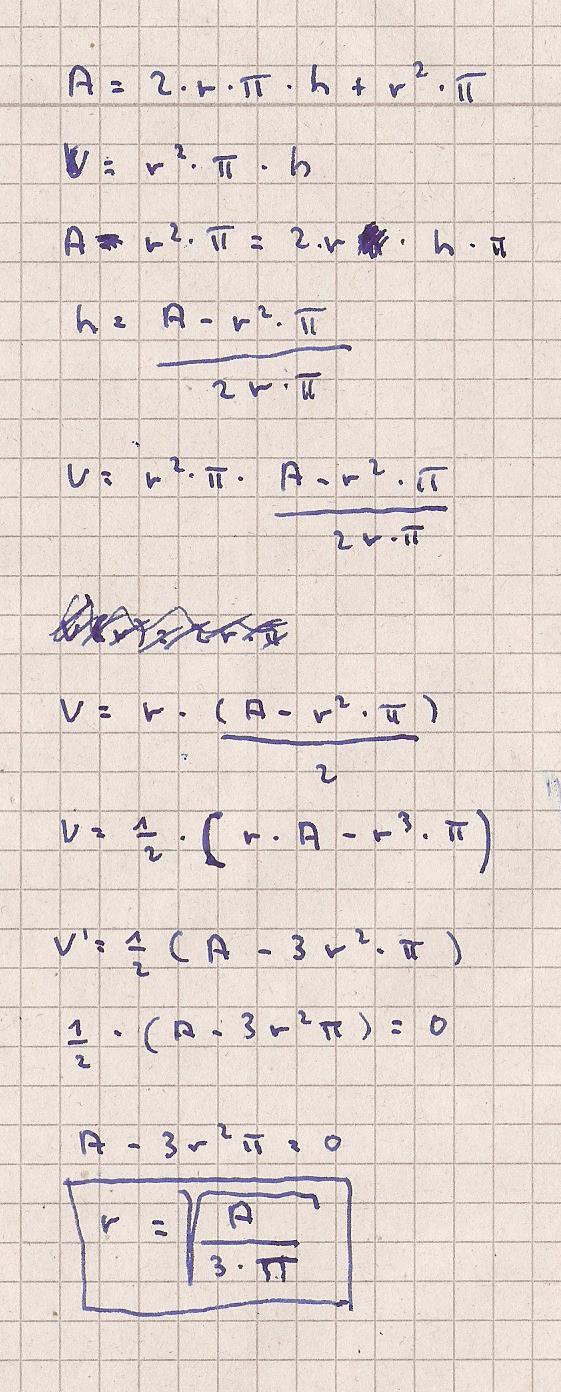 A = 2·r·π·h + r²·π
V = r²·π·h
A - r²·π = 2·r·h·π
h = (A - r²·π)/(2r·π)
V = r²·π·(A - r²·π)/(2r·π)
V = r·(A - r²·π)/2
V = 1/2·(r·A - r³·π)
V' = 1/2 (A - 3r²·π)
1/2·(A - 3r²π) = 0
A - 3r²π = 0
r = √(A/(3·π))